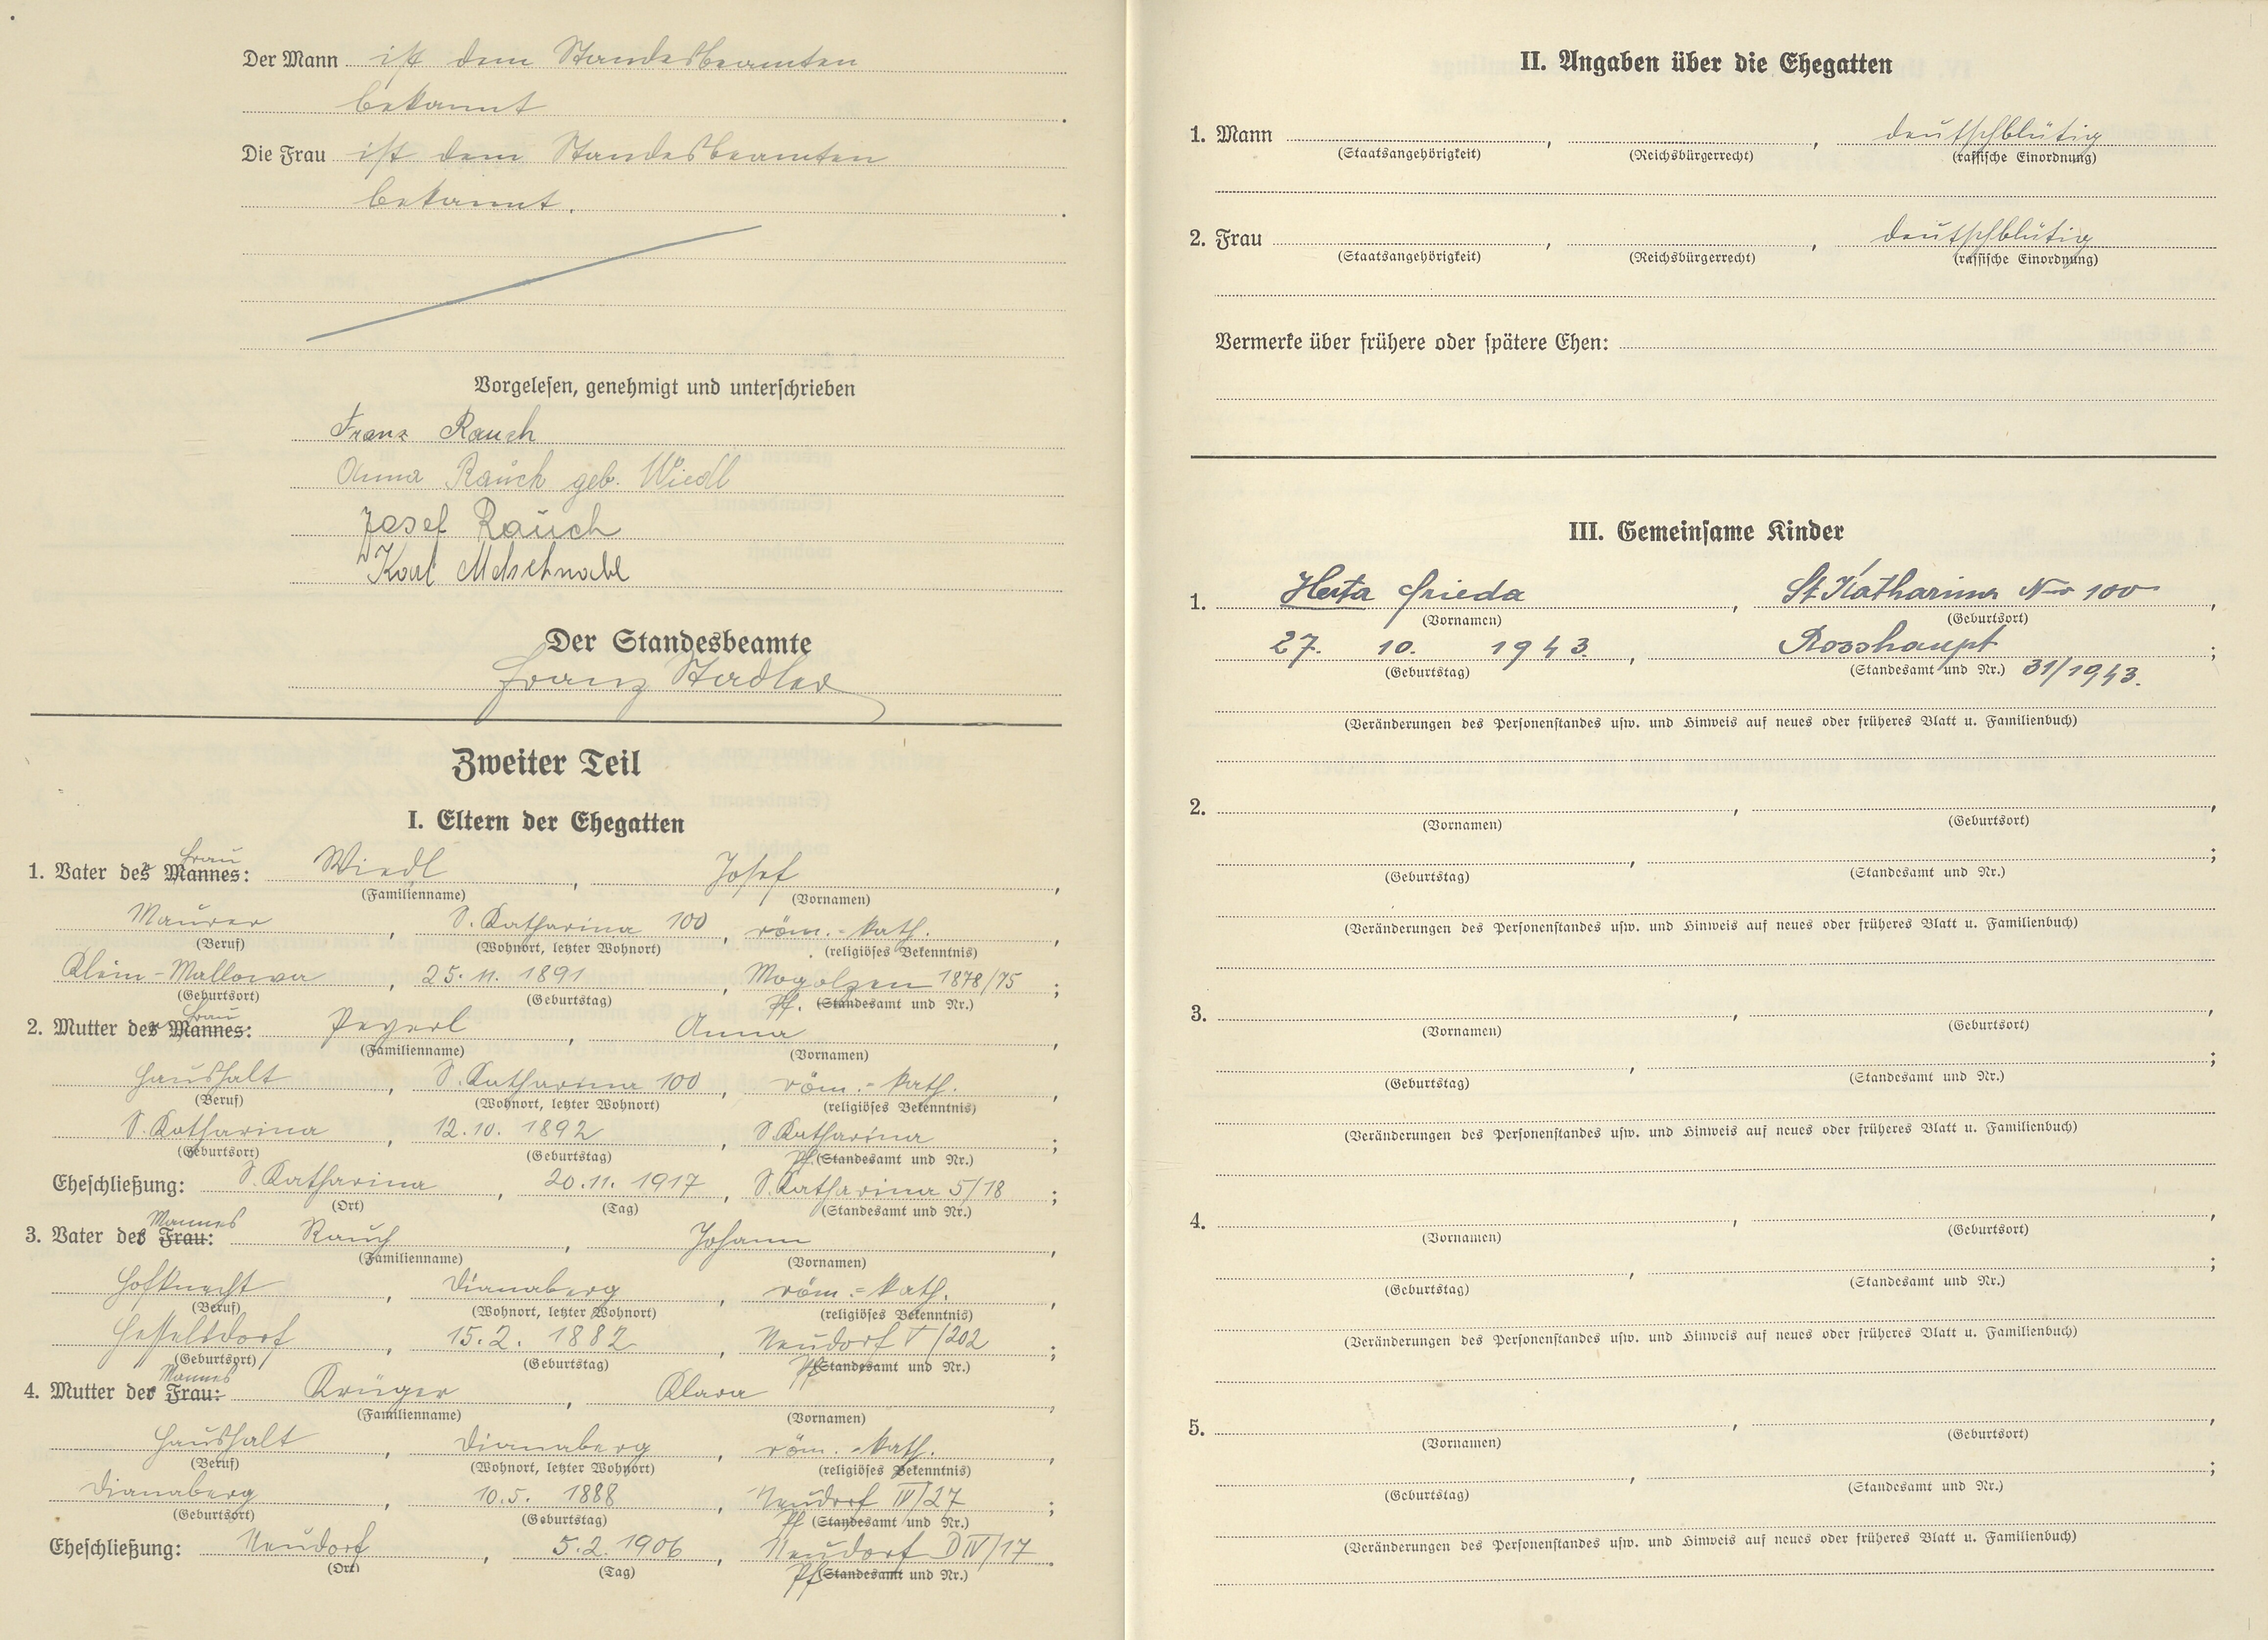 Der Mann ist dem Standesbeamten
bekannt.
Die Frau ist dem Standesbeamten
bekannt.
Vorgelesen, genehmigt und unterschrieben
Franz Rauch
Anna Rauch geb. Wiedl
Josef Rauch
Karl
Der Standesbeamte
Franz Stadler
Zweiter Teil
I. Eltern der Ehegatten
Frau
1. Vater der Mannes: Wiedl, Josef,
(Familienname) (Vornamen)
Maurer, S. Katharina 100, röm.-kath.,
(Beruf) (Wohnort, letzter Wohnort) (religiöses Bekenntnis)
Klein-Mallowa, 25.11.1891, Mogolzen 1878/75;
(Geburtsort) (Geburtstag) Pf. (Standesamt und Nr.)
Frau
2. Mutter der Mannes: Peyerl, Anna,
(Familienname) (Vornamen)
Haushalt, S. Katharina 100, röm.-kath.,
(Beruf) (Wohnort, letzter Wohnort) (religiöses Bekenntnis)
S. Katharina, 12.10.1892, S. Katharina;
(Geburtsort) (Geburtstag) Pf. (Standesamt und Nr.)
Eheschließung: S. Katharina, 20.11.1917, S. Katharina 5/18;
(Ort) (Tag) (Standesamt und Nr.)
Mannes
3. Vater des Frau: Rauch, Johann,
(Familienname) (Vornamen)
Hofknecht, Dianaberg, röm.-kath.,
(Beruf) (Wohnort, letzter Wohnort) (religiöses Bekenntnis)
Hesselsdorf, 15.2.1882, Neudorf V/202;
(Geburtsort) (Geburtstag) Pf (Standesamt und Nr.)
Mannes
4. Mutter des Frau: Krüger, Klara,
(Familienname) (Vornamen)
Haushalt, Dianaberg, röm.-kath.,
(Beruf) (Wohnort, letzter Wohnort) (religiöses Bekenntnis)
Dianaberg, 10.5.1888, Neudorf IV/27;
(Geburtsort) (Geburtstag) Pf (Standesamt und Nr.)
Eheschließung: Neudorf, 5.2.1906, Neudorf D IV/17.
(Ort) (Tag) Pf (Standesamt und Nr.)
II. Angaben über die Ehegatten
1. Mann , , deutschblütig
(Staatsangehörigkeit) (Reichsbürgerrecht) (rassische Einordnung)
2. Frau , , deutschblütig
(Staatsangehörigkeit) (Reichsbürgerrecht) (rassische Einordnung)
Vermerke über frühere oder spätere Ehen:
III. Gemeinsame Kinder
1. Herta Frieda, St. Katharina No 100,
(Vornamen) (Geburtsort)
27. 10. 1943., Rosshaupt;
(Geburtstag) (Standesamt und Nr.) 31/1943.
(Veränderungen des Personenstandes usw. und Hinweis auf neues oder früheres Blatt u. Familienbuch)
2. , ,
(Vornamen) (Geburtsort)
, ;
(Geburtstag) (Standesamt und Nr.)
(Veränderungen des Personenstandes usw. und Hinweis auf neues oder früheres Blatt u. Familienbuch)
3. , ,
(Vornamen) (Geburtsort)
, ;
(Geburtstag) (Standesamt und Nr.)
(Veränderungen des Personenstandes usw. und Hinweis auf neues oder früheres Blatt u. Familienbuch)
4. , ,
(Vornamen) (Geburtsort)
, ;
(Geburtstag) (Standesamt und Nr.)
(Veränderungen des Personenstandes usw. und Hinweis auf neues oder früheres Blatt u. Familienbuch)
5. , ,
(Vornamen) (Geburtsort)
, ;
(Geburtstag) (Standesamt und Nr.)
(Veränderungen des Personenstandes usw. und Hinweis auf neues oder früheres Blatt u. Familienbuch)